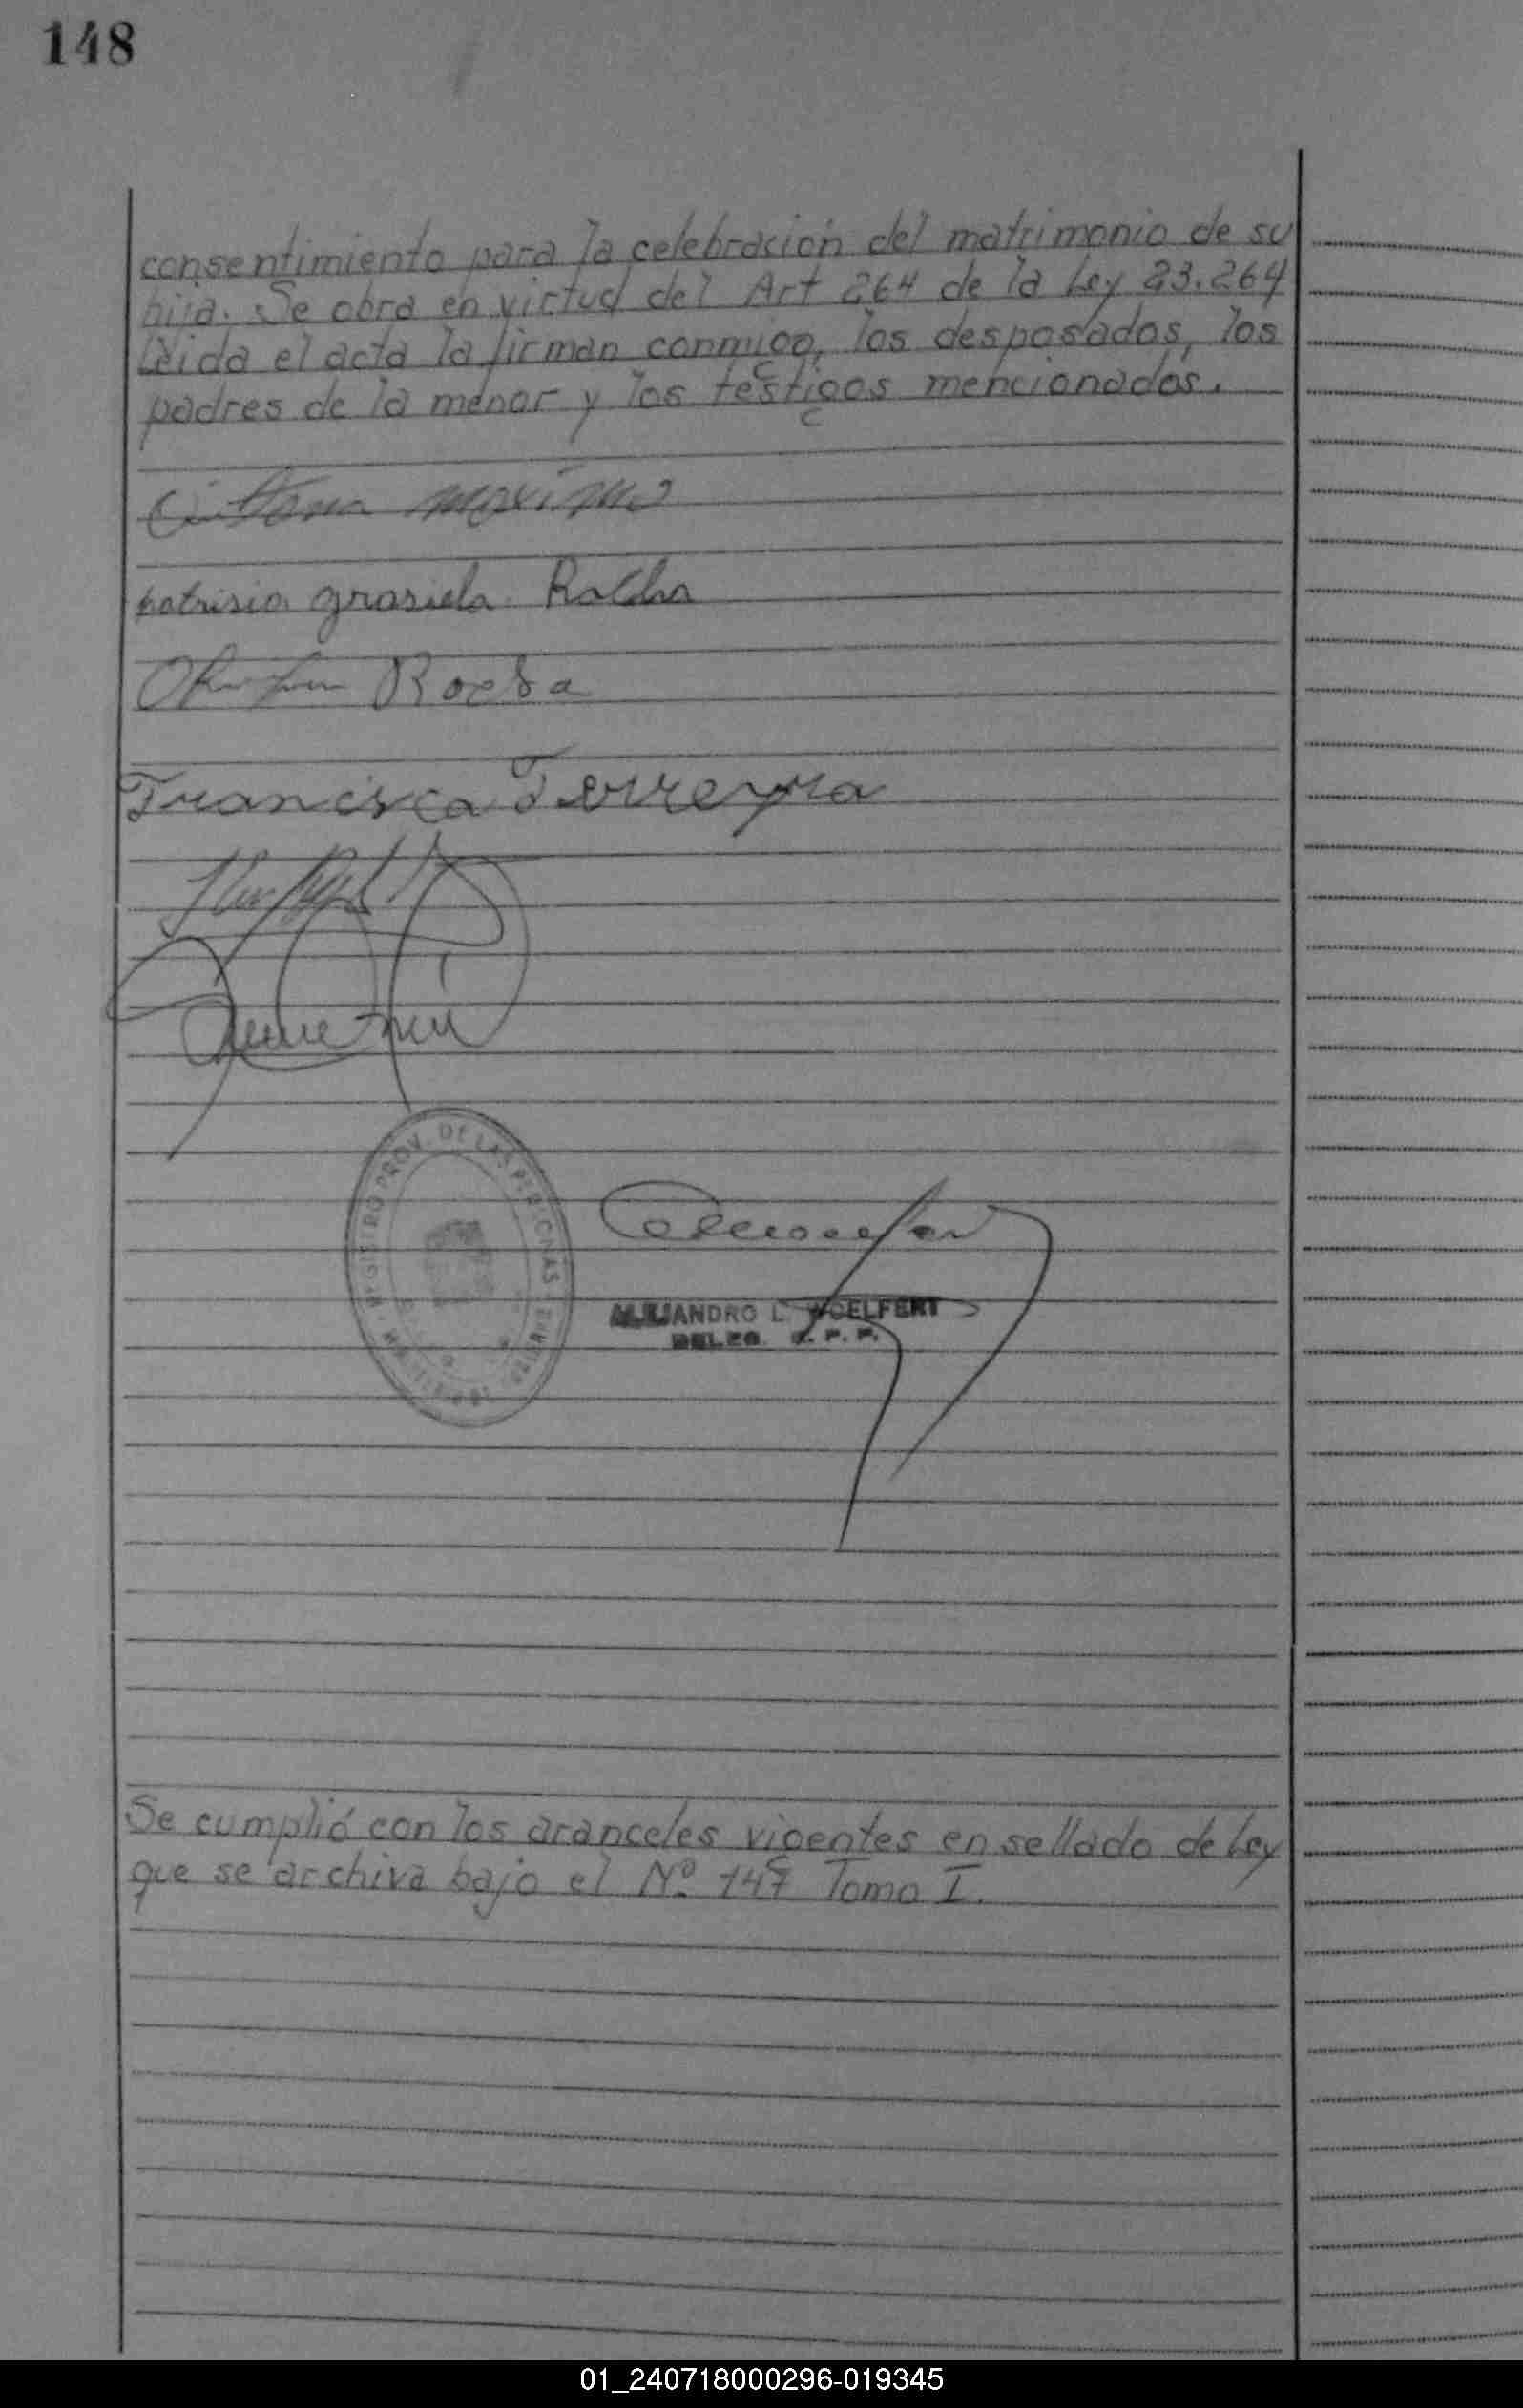 148
consentimiento para la celebración del matrimonio de su
hija. Se obra en virtud del Art 264 de la Ley 23.264
Leida el acta la firman conmigo, los desposados, los
padres de la menor y los testigos mencionados.
maximo
patrisia grasiela
Francisca Ferreyra
REGISTRO PROV. DE LAS PERSONAS
ALEJANDRO L. WOELFERT
DELEG.
Se cumplió con los aranceles vigentes en sellado de Ley
que se archiva bajo el Nº 147 Tomo I.
01_240718000296-019345